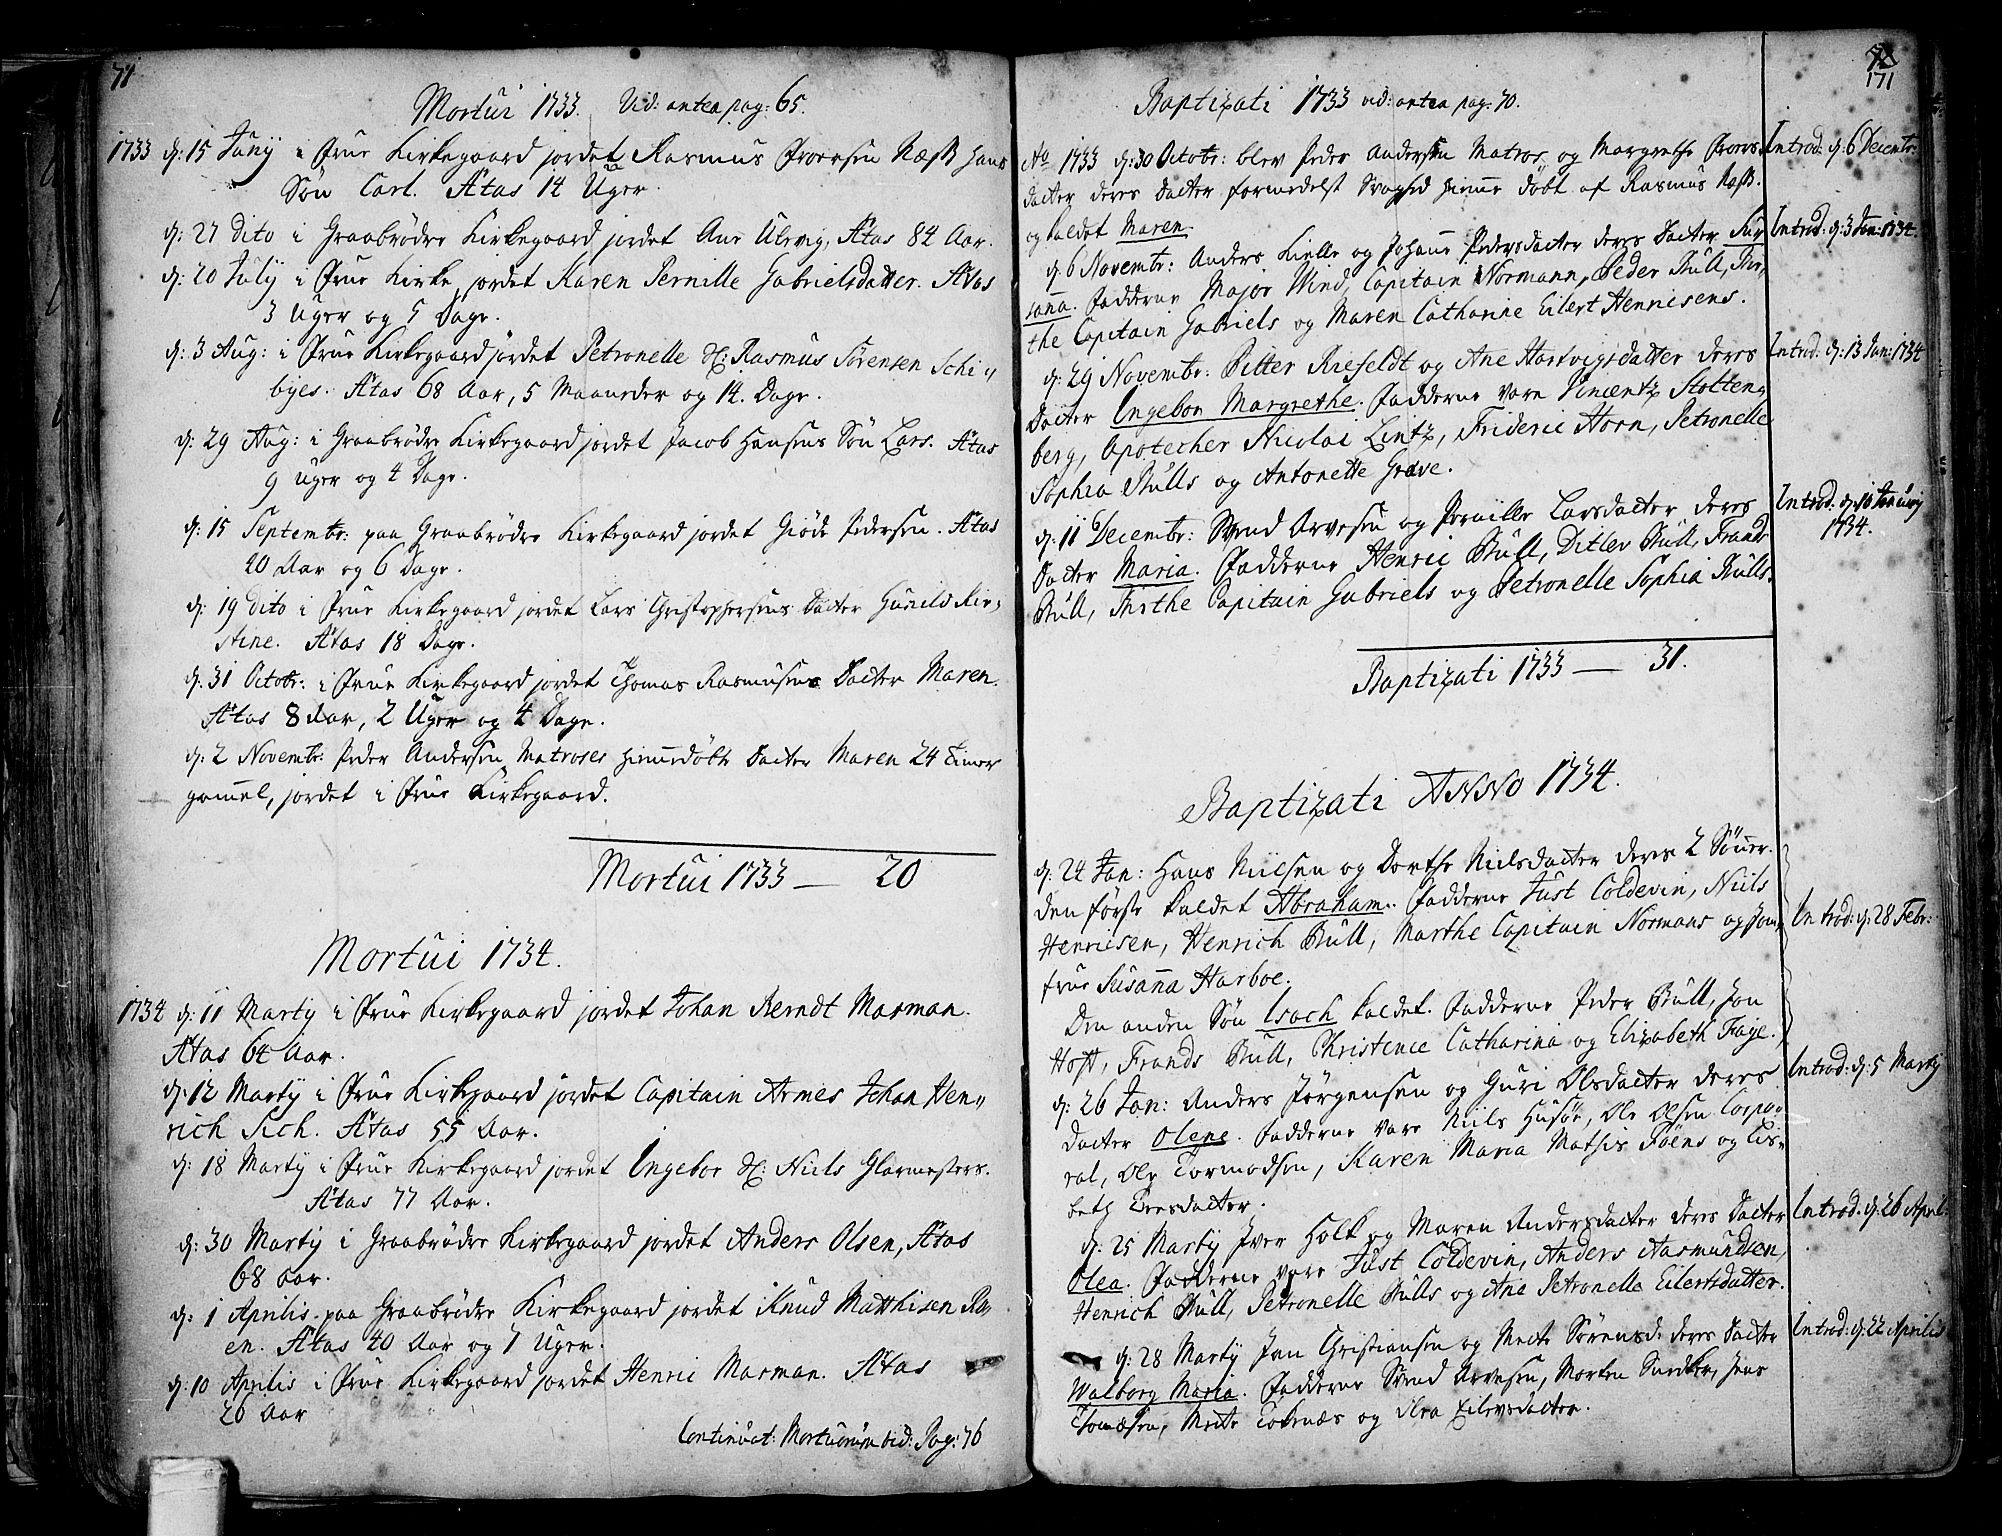 71
Mortui 1733. Vid: antea pag: 65.
1733 d: 15 Junij i Frue Kirkegaard jordet Rasmus Iversen Næss hans
Søn Carl. Ætas 14 Uger.
d: 27 dito i Graabrødre Kirkegaard jordet Ane Ulevig, Ætas 84 Aar.
d: 20 July i Frue Kirke jordet Karen Pernille Gabrielsdatter. Ætas
3 Uger og 5 Dage.
d: 3 Aug: i Frue Kirkegaard jordet Petronelle Sl: Rasmus Sørensen Schi„
byes. Ætas 68 Aar, 5 Maaneder og 14. Dage.
d: 29 Aug: i Graabrødre Kirkegaard jordet Jacob Hansens Søn Lars. Ætas
9 Uger og 4 Dage.
d: 15 Septembr: paa Graabrødre Kirkegaard jordet Giøde Pedersen. Ætas
20 Aar og 6 Dage.
d: 19 dito i Frue Kirkegaard jordet Lars Christophersens Datter Gunild Kir„
stine. Ætas 18 Dage.
d. 31 Octobr: i Frue Kirkegaard jordet Thomas Rasmusens Datter Maren.
Ætas 8 Aar, 2 Uger og 4 Dage.
d: 2 Novembr: Peder Andersen Matroses hiemedøbte Datter Maren 24 Timer
gamel, jordet i Frue Kirkegaard.
Mortui 1733 — 20
Mortui 1734.
1734 d: 11 Martij i Frue Kirkegaard jordet Johan Berndt Marman.
Ætas 64 Aar.
d: 12 Martij i Frue Kirkegaard jordet Capitain Armes Johan Hen„
rich Sich. Ætas 55 Aar.
d: 18 Martij i Frue Kirkegaard jordet Ingebor Sl: Niels Glarmesters.
Ætas 77 Aar.
d: 30 Martij i Graabrødre Kirkegaard jordet Anders Olsen, Ætas
68 Aar.
d: 1 Aprilis. paa Graabrødre Kirkegaard jordet Knud Matthisen
en. Ætas 40 Aar og 1 Uger.
d: 10 Aprilis i Frue Kirkegaard jordet Henric Marman. Ætas
26 Aar
Continuat: Mortuorum vid: Pag: 76
72
171
Baptizati 1733 vid: antea pag. 70.
Ao 1733 d: 30 Octobr: blev Peder Andersen Matros og Margrethe Ivers„
datter deres Datter formedelst Svaghed hieme døbt af Rasmus Næss.
og kaldet Maren.
Introd: d: 6 Decembr:
d: 6 Novembr: Anders Kielle og Johane Pedersdatter deres Datter Su„
sana. Fadderne Major Wind, Capitain Normann, Peder Bull, Bir„
the Capitain Gabriels og Maren Catharine Eilert Henricsens.
Introd: d: 3 Jan: 1734.
d: 29 Novembr: Pitter Riesfeldt og Ane Hartvigsdatter deres
Datter Ingebor Margrethe. Fadderne vare Vincentz Stolten„
berg, Apotecher Nicolai Lintz, Frideric Horn, Petronelle
Sophia Bulls og Antonette Greve.
Introd: d: 13 Jan: 1734
d: 11 Decembr: Svend Arvesen og Pernille Larsdatter deres
Datter Maria. Fadderne Henric Bull, Ditlev Bull, Frands
Bull, Birthe Capitain Gabriels og Petronelle Sophia Bulls.
Introd: d: 10 Januarij
1734.
Baptizati 1733 — 31.
Baptizati ANNO 1734.
d: 24 Jan: Hans Nielsen og Dorthe Nielsdatter deres 2 Sønner.
den første kaldet Abraham. Fadderne Just Coldevin, Niels
Henricsen, Henrich Bull, Marthe Capitain Normans og Jom„
frue Susanna Harboe.
Introd: d: 28 Febr:
Den anden Søn Isach kaldet. Fadderne Peder Bull, Jon
Host, Frands Bull, Christence Catharina og Elizabeth Faye.
d: 26 Jan: Anders Jørgensen og Guri Olsdatter deres
Datter Olene. Fadderne vare Niels Husøe, Ole Olsen Corpo„
ral, Ole Tormodsen, Karen Maria Mathis Føens og Lis„
beth Iversdatter.
Introd: d: 5 Martij
d: 25 Martij Iver Holk og Maren Andersdatter deres Datter
Olea. Fadderne vare Just Coldevin, Anders Aasmundsen,
Henrich Bull, Petronelle Bulls og Ane Petronella Eilertsdatter.
Introd. d: 26 April:
d: 28 Martij Jan Christiansen og Mette Sørensd: deres Datter
Walborg Maria. Fadderne Svend Arvesen, Morten Snedker, Jens
Thomæsen, Mette Tokenæs og Olea Eilersdatter.
Introd: d: 22 Aprilis